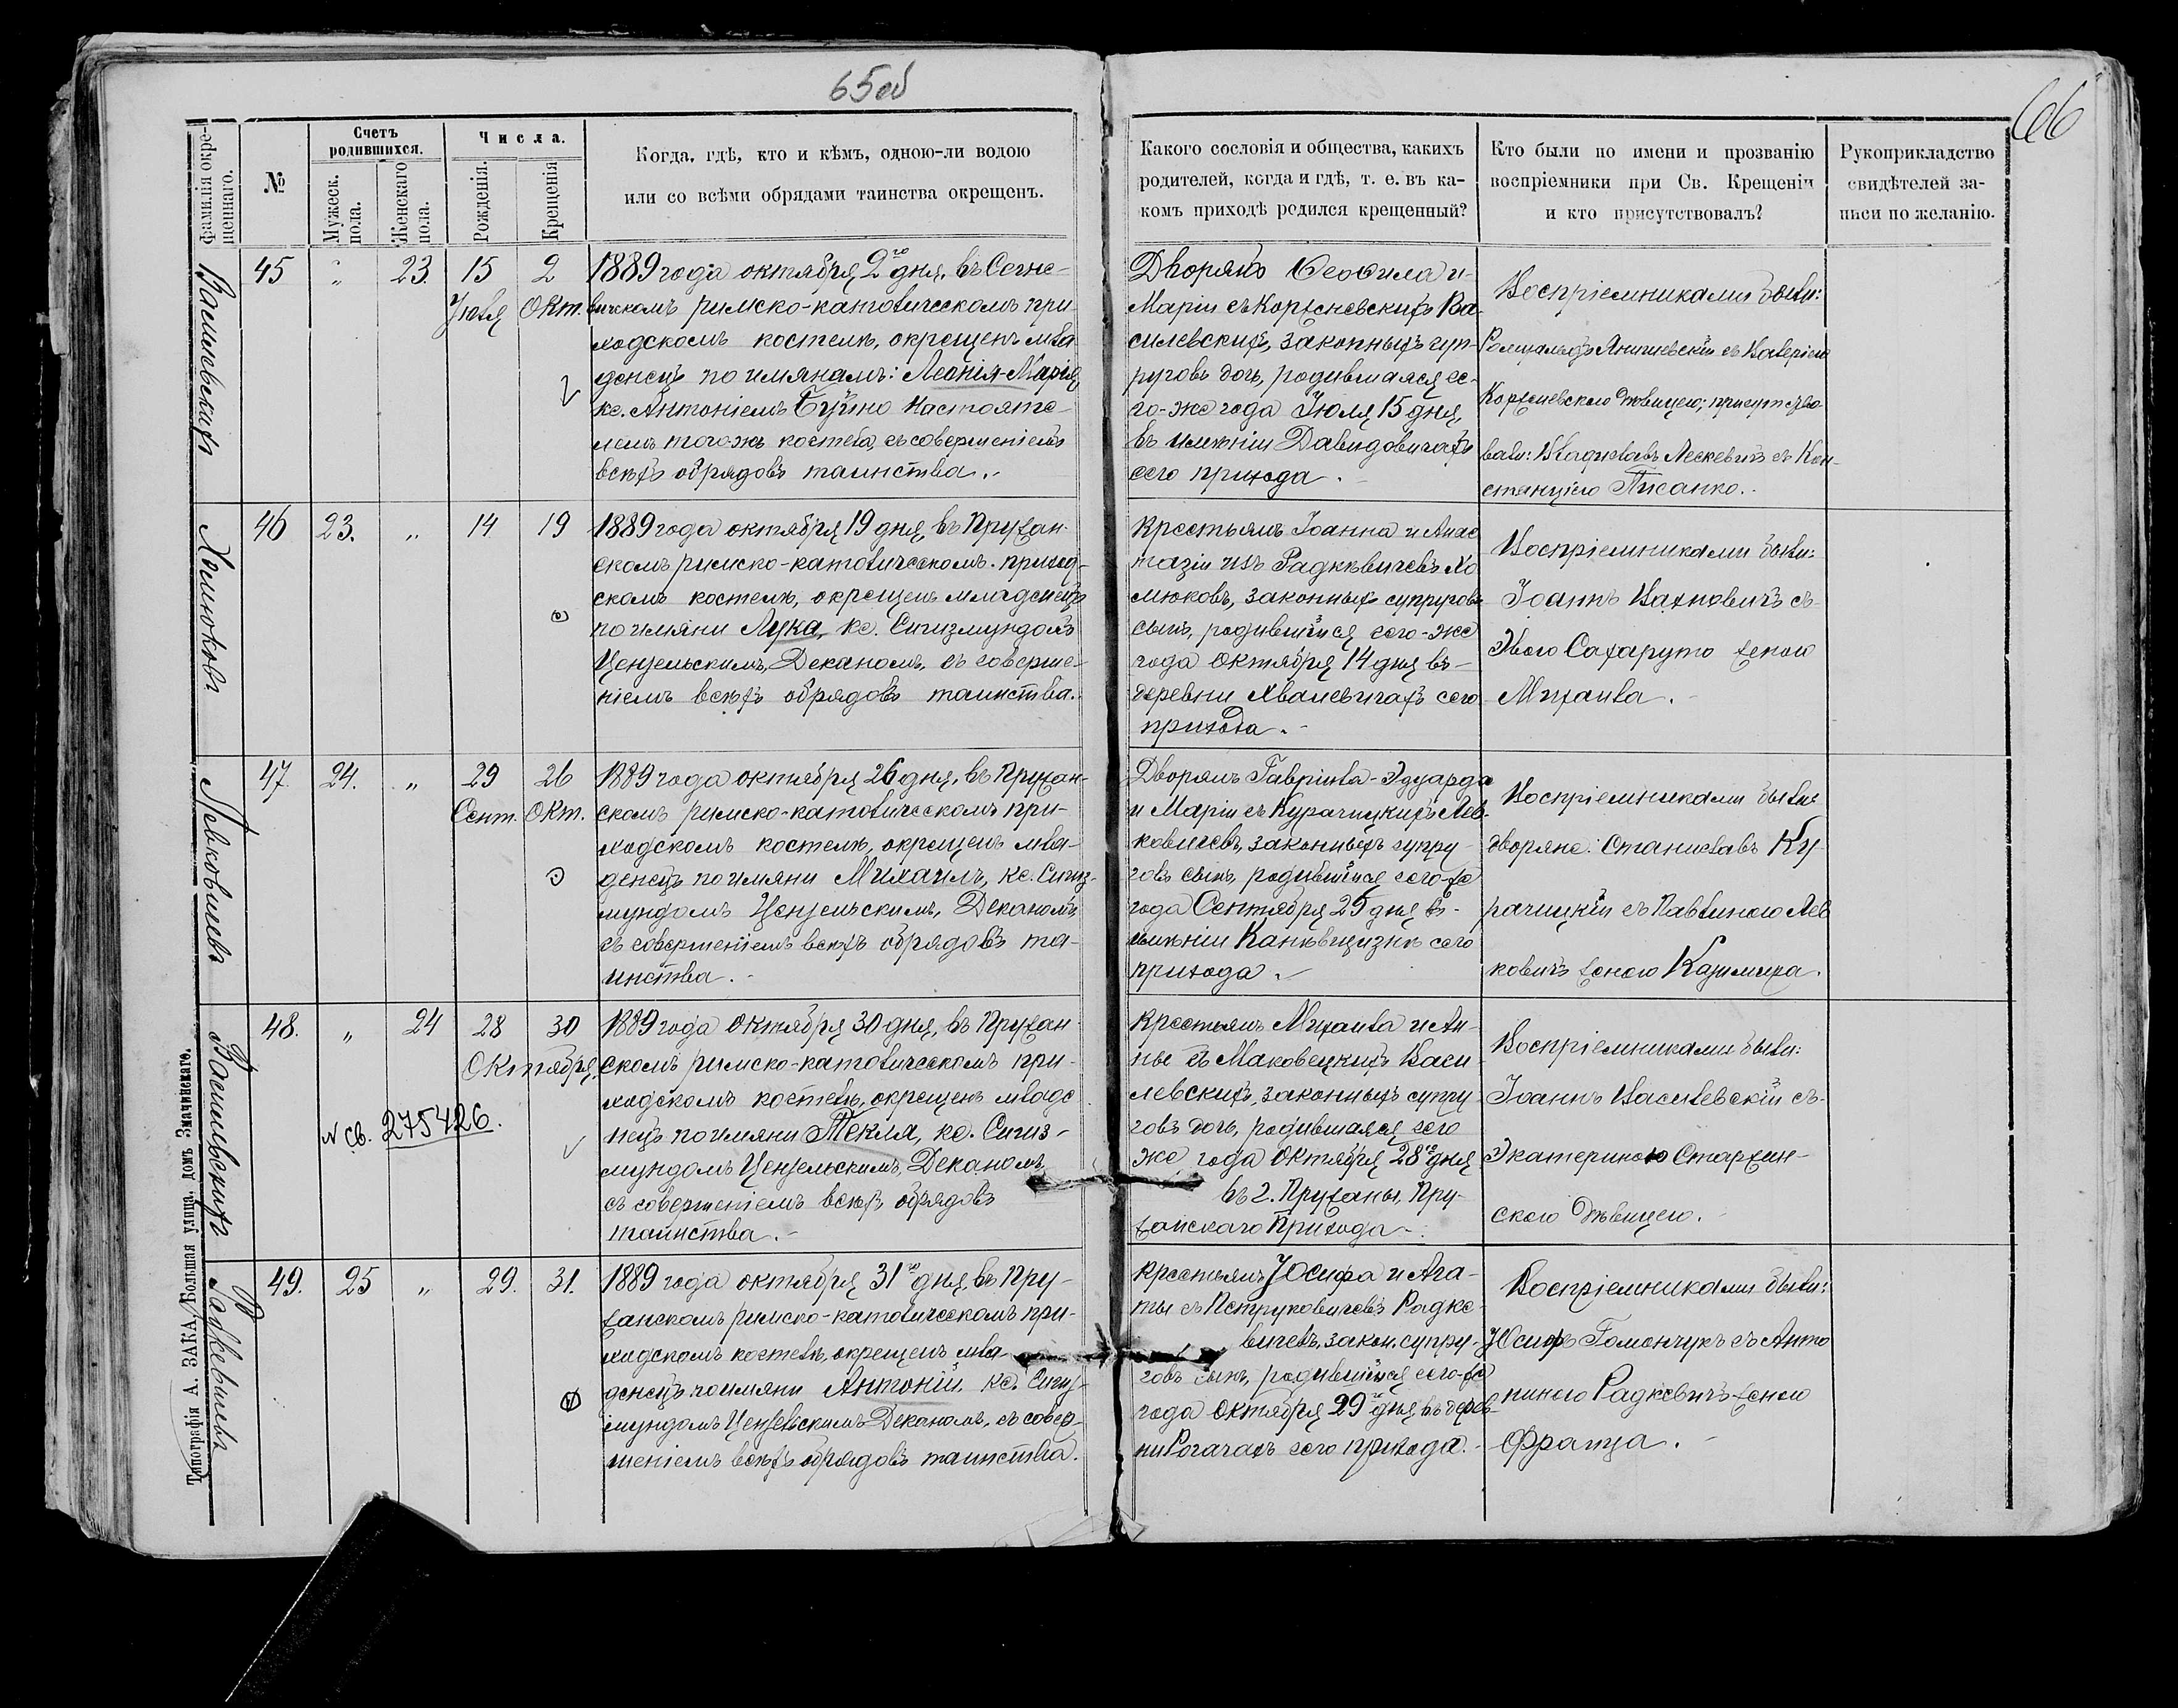 65об
66
Фамилія окре-
щеннаго.
№
Счетъ
родившихся.
Мужеск.
пола.
Женскаго
пола.
Числа.
Рожденія.
Крещенія
Когда, гдѣ, кто и кѣмъ, одною-ли водою
или со всѣми обрядами таинства окрещенъ.
Какого сословія и общества, какихъ
родителей, когда и гдѣ, т. е. въ ка-
комъ приходѣ родился крещенный?
Кто были по имени и прозванію
воспріемники при Св. Крещеніи
и кто присутствовалъ?
Рукоприкладство
свидѣтелей за-
писи по желанію.
Василевскихъ
45 " 23. 15 2
Іюля Окт.
1889 года октября 2го дня, въ Сегне-
вичскомъ римско-католическомъ при-
ходскомъ костелѣ, окрещенъ мла
денецъ по имянамъ: Леонія-Марія,
кс. Антоніемъ Буйно Настояте-
лемъ того-жъ костела, съ совершеніемъ
всѣхъ обрядовъ таинства.
Дворянъ Ѳеофила и
Маріи съ Корженевскихъ Ва-
силевскихъ, законныхъ суп-
руговъ дочь, родившаяся се-
го-же года Іюля 15 дня,
въ имѣніи Давидовичахъ
сего прихода.
Воспріемниками были:
Ромуальдъ съ Валеріею
Корженевскою дѣвицею; присутство-
вали: Владиславъ Лескевичъ съ Кон-
станціею Писанко.
Хомюковъ
46 23. " 14 19
1889 года октября 19 дня, въ Пружан-
скомъ римско-католическомъ приход-
скомъ костелѣ, окрещенъ младенецъ
по имяни Лука, кс. Сигизмундомъ
Цензельскимъ, Деканомъ, съ соверше-
ніемъ всѣхъ обрядовъ таинства.
Крестьянъ Іоанна и Анас
тазіи изъ Радкѣвичевъ Хо
мюковъ, законныхъ супруговъ
сынъ, родившійся сего-же
года октября 14 дня въ-
деревни Хвалевичахъ сего
прихода.
Воспріемниками были:
Іоаннъ съ-
Эвою женою
Михаила.
Левковичевъ
47. 24. " 29 26
Сент. Окт.
1889 года октября 26 дня, въ Пружан-
скомъ римско-католическомъ при-
ходскомъ костелѣ, окрещенъ мла-
денецъ по имяни Михаилъ, кс. Сигиз-
мундомъ Цензельскимъ, Деканомъ,
съ совершеніемъ всѣхъ обрядовъ та-
инства.
Дворянъ Гавріила-Эдуарда
и Маріи съ Курачицкихъ Лев-
ковичевъ, законныхъ супру-
говъ сынъ, родившійся сего-же
года Сентября 29 дня въ-
имѣніи сего
прихода.
Воспріемниками были
дворяне: Станиславъ Ку
рачицкій съ Павлиною Лев
ковичъ женою Казимира.
Василевскихъ
48. " 24 28 30
Октября.
N св. 275426.
1889 года октября 30 дня, въ Пружан
скомъ римско-католическомъ при-
ходскомъ костелѣ, окрещенъ младе
нецъ по имяни Текля, кс. Сигиз-
мундомъ Цензельскимъ, Деканомъ,
съ совершеніемъ всѣхъ обрядовъ
таинства.
Крестьянъ Михаила и Ан-
ны съ Маковецкихъ Васи
левскихъ, законныхъ супру
говъ дочь, родившаяся сего
же года октября 28го дня
въ г. Пружаны, Пру-
жанскаго Прихода.
Воспріемниками были:
Іоаннъ Василевскій съ-
Экатериною Старжин-
скою дѣвицею.
Радкевичевъ
49. 25 " 29. 31.
1889 года октября 31го дня, въ Пру-
жанскомъ римско-католическомъ при-
ходскомъ костелѣ, окрещенъ мла-
денецъ по имяни Антоній, кс. Сигиз-
мундомъ Цензельскимъ Деканомъ, съ совер-
шеніемъ всѣхъ обрядовъ таинства.
Крестьянъ Юсифа и Ага-
ты съ Петруковичевъ Радке-
вичевъ, закон. супру-
говъ сынъ, родившійся сего-же
года октября 29го дня въ дерев-
ни Рогачахъ сего прихода.
Воспріемниками были:
Юсифъ Гомончукъ съ Анто
ниною Радкевичъ женою
Франца.
Типографія А. ЗАКА, Большая улица, домъ Змачинскаго.